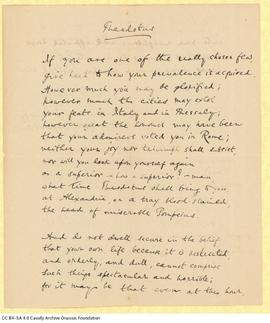 Theodotus
If you are one of the really chosen few
give heed to how your prevalence is acquired.
However much you may be glorified;
however much the cities may extol
your feats in Italy and in Thessaly;
however great the honors may have been
that your admirers voted you in Rome;
neither your joy nor triumph shall subsist,
nor will you look upon yourself again
as a superior — how a superior? — man,
what time Theodotus shall bring to you,
at Alexandria, on a tray blood-stained,
the head of miserable Pompeius.
And do not dwell secure in the belief
that your own life because it is restricted
and orderly, and dull, cannot comprise
such things spectacular and horrible;
for it may be that even at this hour
CC BY-SA 4.0 Cavafy Archive Onassis Foundation